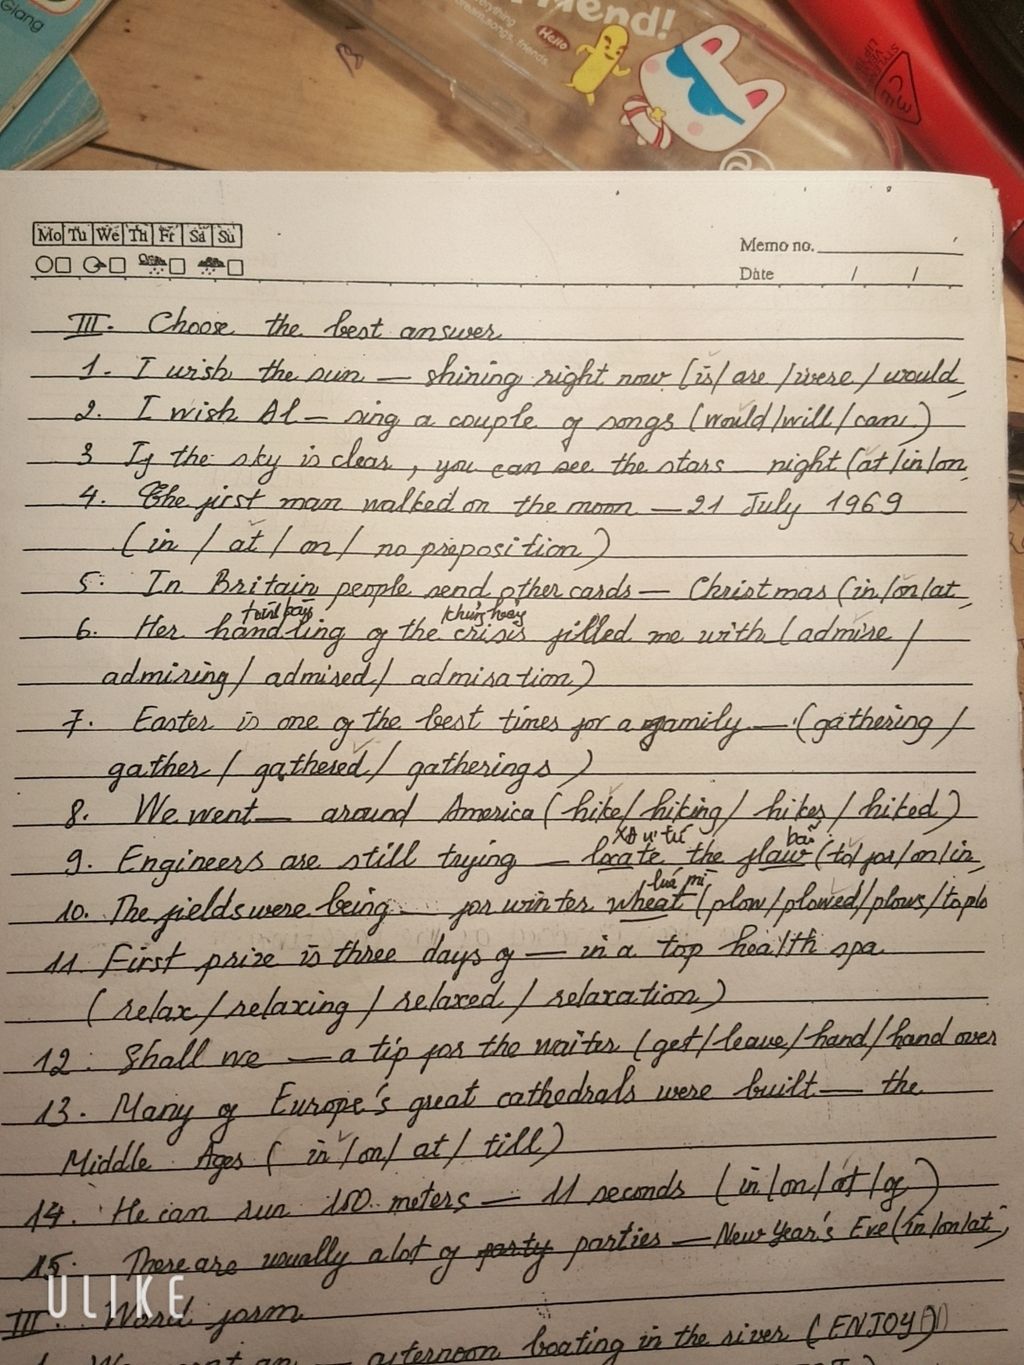 Giang
Friend!
everything
dream, songs, friends.
Hello
Mo Tu We Th Fr Sa Su
Memo no.
Date / /
III. Choose the best answer
1. I wish the sun — shining right now (is/ are /were / would
2. I wish Al — sing a couple of songs (would/will/can)
3 If the sky is clear, you can see the stars — night (at/in/on
4. The first man walked on the moon — 21 July 1969
(in / at / on / no preposition)
5. In Britain people send other cards — Christmas (in/on/at
6. Her handling of the crisis filled me with (admire /
admiring / admired / admiration)
7. Easter is one of the best times for a family — (gathering /
gather / gathered / gatherings)
8. We went — around America (hike/ hiking/ hikes / hiked)
9. Engineers are still trying — locate the flaw (to/for/on/in
lúa mì
10. The fields were being — for winter wheat (plow/plowed/plows/to plo
11. First prize is three days of — in a top health spa
(relax / relaxing / relaxed / relaxation)
12. Shall we — a tip for the waiter (get/leave/hand/hand over
13. Many of Europe's great cathedrals were built — the
Middle Ages (in /on/ at / till)
14. He can run 100 meters — 11 seconds (in/on/at/of)
15. There are usually a lot of party parties — New Year's Eve (in/on/at
ULIKE
III. Word form
afternoon boating in the river (ENJOY)